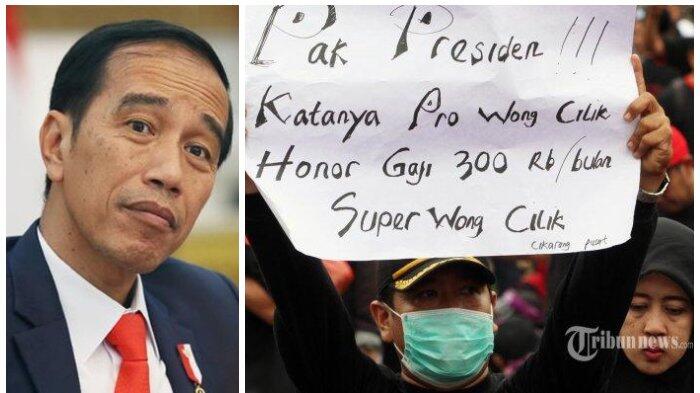 Pak Presiden!!!
Katanya Pro Wong Cilik
Honor Gaji 300 Rb/bulan
Super Wong Cilik
Cikarang Pusat
Tribunnews.com